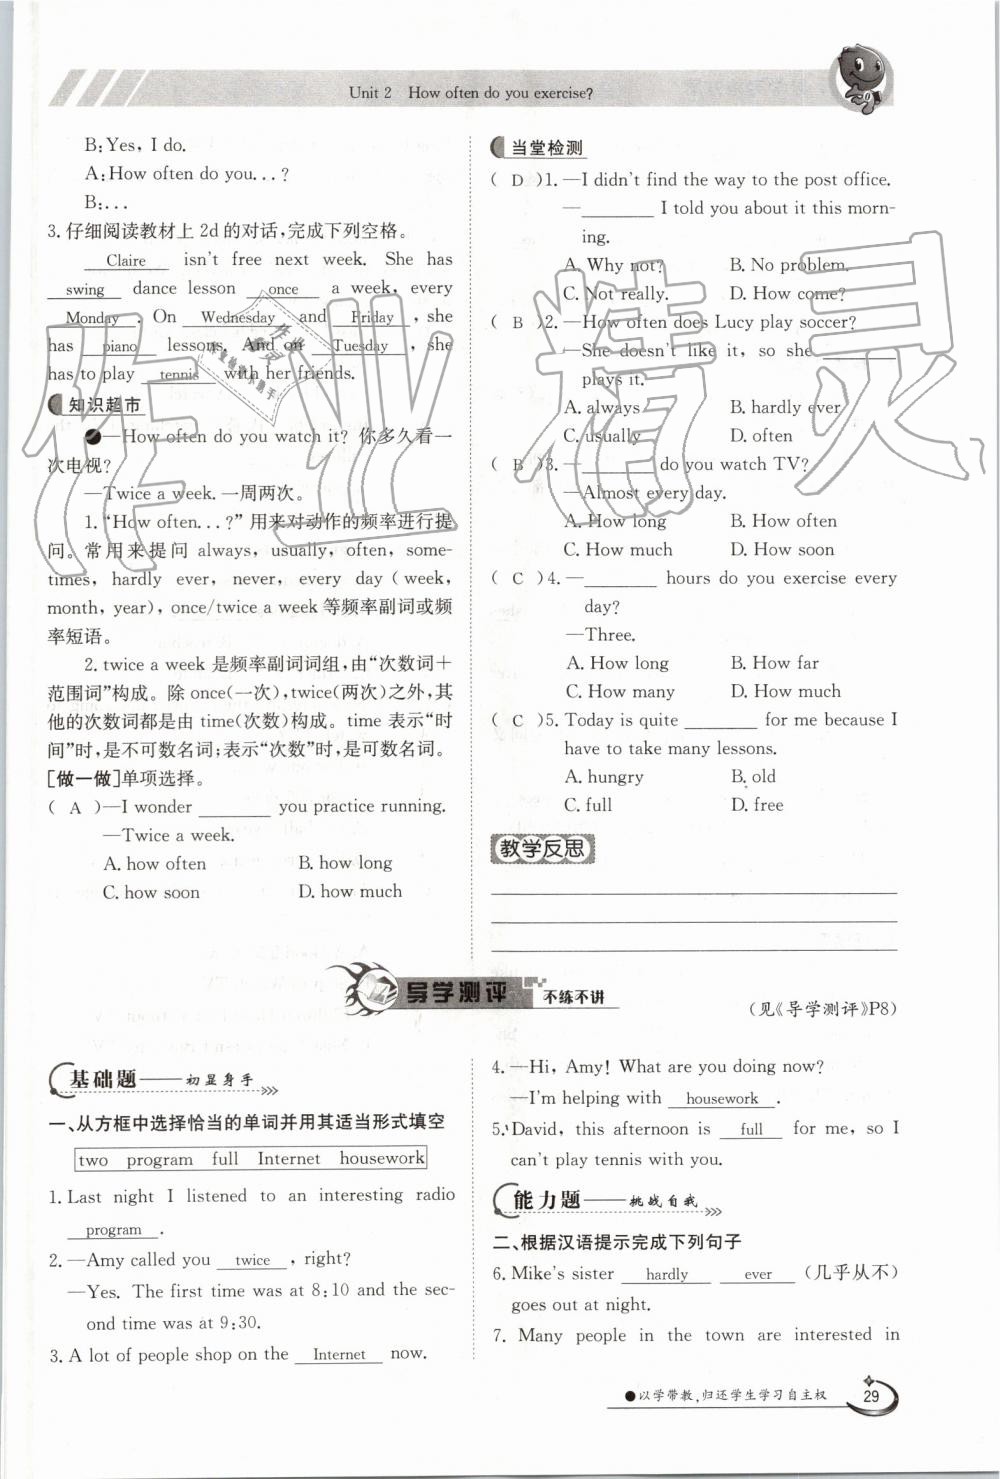 Unit 2 How often do you exercise?
B: Yes, I do.
A: How often do you...?
B:...
3. 仔细阅读教材上 2d 的对话,完成下列空格。
Claire isn't free next week. She has
swing dance lesson once a week, every
Monday. On Wednesday and Friday, she
has piano lessons. And on Tuesday, she
has to play tennis with her friends.
知识超市
●—How often do you watch it? 你多久看一
次电视?
—Twice a week. 一周两次。
1. "How often...?"用来对动作的频率进行提
问。常用来提问 always, usually, often, some-
times, hardly ever, never, every day (week,
month, year), once/twice a week 等频率副词或频
率短语。
2. twice a week 是频率副词词组,由"次数词+
范围词"构成。除 once(一次),twice(两次)之外,其
他的次数词都是由 time(次数)构成。time 表示"时
间"时,是不可数名词;表示"次数"时,是可数名词。
[做一做]单项选择。
( A )—I wonder ________ you practice running.
—Twice a week.
A. how often B. how long
C. how soon D. how much
当堂检测
( D )1. —I didn't find the way to the post office.
—________ I told you about it this morn-
ing.
A. Why not? B. No problem.
C. Not really. D. How come?
( B )2. —How often does Lucy play soccer?
—She doesn't like it, so she ________
plays it.
A. always B. hardly ever
C. usually D. often
( B )3. —________ do you watch TV?
—Almost every day.
A. How long B. How often
C. How much D. How soon
( C )4. —________ hours do you exercise every
day?
—Three.
A. How long B. How far
C. How many D. How much
( C )5. Today is quite ________ for me because I
have to take many lessons.
A. hungry B. old
C. full D. free
教学反思
导学测评 不练不讲
(见《导学测评》P8)
基础题——初显身手
一、从方框中选择恰当的单词并用其适当形式填空
two program full Internet housework
1. Last night I listened to an interesting radio
program.
2. —Amy called you twice, right?
—Yes. The first time was at 8:10 and the sec-
ond time was at 9:30.
3. A lot of people shop on the Internet now.
4. —Hi, Amy! What are you doing now?
—I'm helping with housework.
5. David, this afternoon is full for me, so I
can't play tennis with you.
能力题——挑战自我
二、根据汉语提示完成下列句子
6. Mike's sister hardly ever (几乎从不)
goes out at night.
7. Many people in the town are interested in
●以学带教,归还学生学习自主权
29
作业精灵